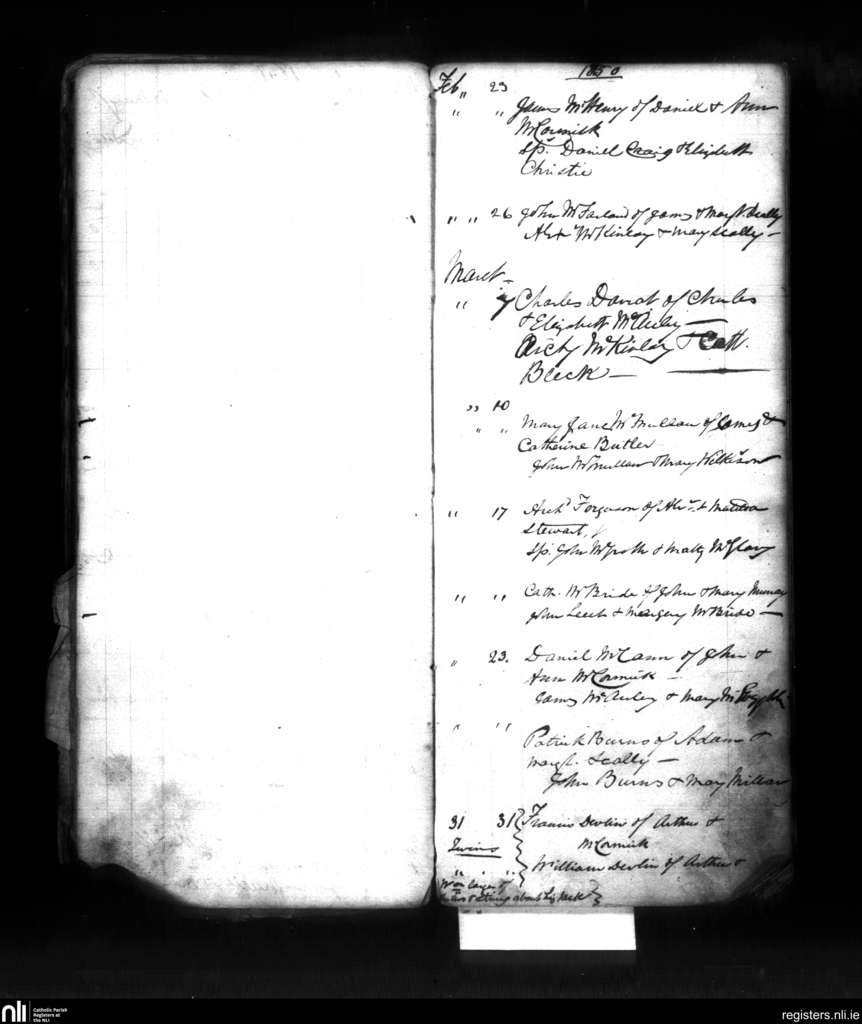 1850
Feb " 23
" " James McHenry of Daniel & Ann
McCormick
Sps. Daniel Craig & Elizabeth
Christie
" " 26 John McFarland of James & Mary Scally
Alexr McKinlay & Mary Scally —
March —
" 7 Charles David of Charles
& Elizabeth McAuley —
Archy McKinlay & Cath.
Black —
" 10
" " Mary Jane McMullan of James &
Catherine Butler
John McMullan & Mary Wilkison
" 17 Archd Ferguson of Alexr. & Matilda
Stewart,
Sps. John McGrath & Matty McGlary
" " Cath. McBride of John & Mary Murray
John Leech & Margery McBride —
" 23. Daniel McCann of John &
Ann McCormick —
James McAuley & Mary
" " Patrick Burns of Adam &
Margt. Scally —
John Burns & Mary Millar
31 31 Francis Devlin of Arthur &
McCormick
Twins
" " William Devlin of Arthur &
of
& string about his neck
nli
Catholic Parish
Registers at
the NLI
registers.nli.ie